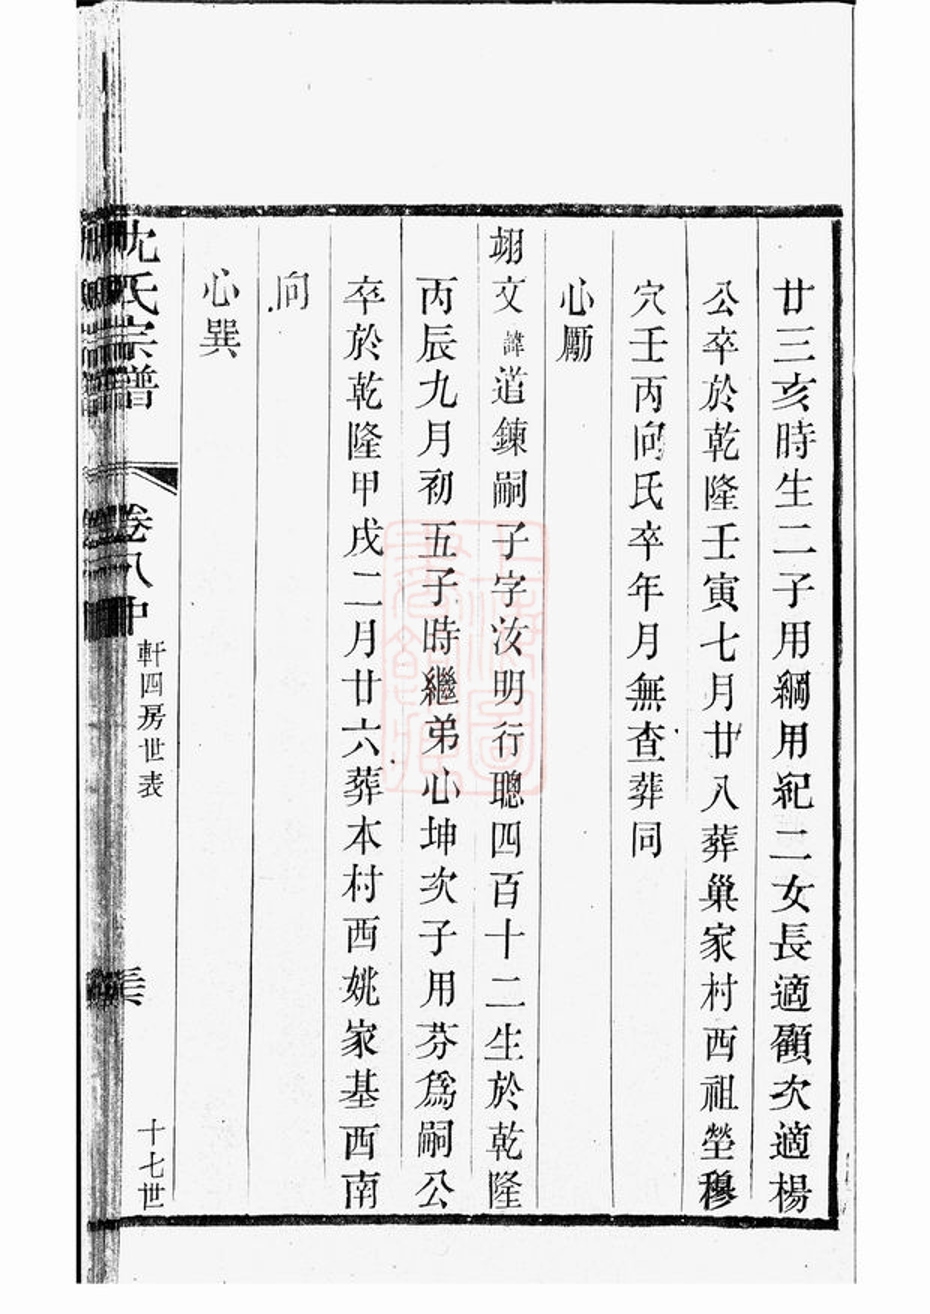 廿三亥時生二子用綱用紀二女長適顧次適楊
公卒於乾隆壬寅七月廿八葬巢家村西祖塋穆
穴壬丙向氏卒年月無查葬同
心勵
翊文諱道鍊嗣子字汝明行聰四百十二生於乾隆
丙辰九月初五子時繼弟心坤次子用芬爲嗣公
卒於乾隆甲戌二月廿六葬本村西姚家基西南
向
心巽
沈氏宗譜
卷八中
軒四房世表
十七世